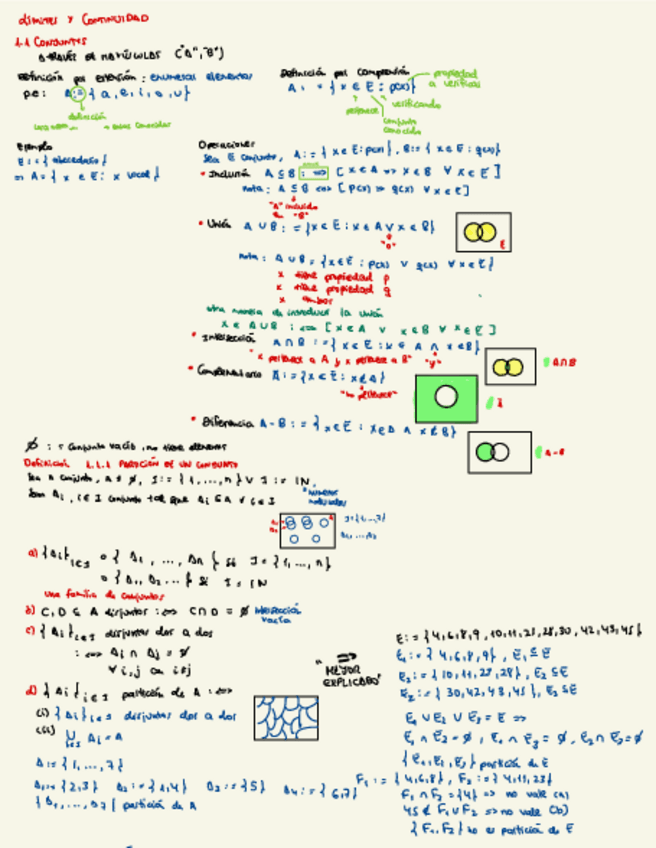 LÍMITES Y CONTINUIDAD
1.1 CONJUNTOS
A TRAVÉS DE MAYÚSCULAS ("A", "B")
Definición por extensión: enumerar elementos
p.e: A := { a, e, i, o, u }
definición
Definición por comprensión
A := { x ∈ E : p(x) }
propiedad a verificar
verificando
pertenece
conjunto conocido
Ejemplo
E := { abecedario }
⇒ A = { x ∈ E : x vocal }
Operaciones
Sea E conjunto, A := { x ∈ E : p(x) }, B := { x ∈ E : q(x) }
• Inclusión A ⊆ B : ⇔ [ x ∈ A ⇒ x ∈ B ∀ x ∈ E ]
nota: A ⊆ B ⇔ [ p(x) ⇒ q(x) ∀ x ∈ E ]
"A" incluido en "B"
• Unión A ∪ B := { x ∈ E : x ∈ A ∨ x ∈ B }
"o"
E
nota: A ∪ B = { x ∈ E : p(x) ∨ q(x) ∀ x ∈ E }
x tiene propiedad p
x tiene propiedad q
x ambas
otra manera de introducir la unión
x ∈ A ∪ B : ⇔ [ x ∈ A ∨ x ∈ B ∀ x ∈ E ]
• Intersección A ∩ B := { x ∈ E : x ∈ A ∧ x ∈ B }
"x pertenece a A y x pertenece a B" "y"
A ∩ B
• Complementario Ā := { x ∈ E : x ∉ A }
"no pertenece"
Ā
• Diferencia A - B := { x ∈ E : x ∈ A ∧ x ∉ B }
A - B
∅ := conjunto vacío, no tiene elementos
Definición 1.1.1 PARTICIÓN DE UN CONJUNTO
Sea A conjunto, A ≠ ∅, I := { 1, ..., n } ∨ I := ℕ,
"números naturales"
Sean Ai, i ∈ I conjunto tal que Ai ⊆ A ∀ i ∈ I
I = { 1, ..., 7 }
A1, ..., A7
a) { Ai } i∈I o { A1, ..., An } si I = { 1, ..., n }
o { A1, A2 ... } si I = ℕ
una familia de conjuntos
b) C, D ⊆ A disjuntos : ⇔ C ∩ D = ∅ intersección vacía
c) { Ai } i∈I disjuntos dos a dos
: ⇔ Ai ∩ Aj = ∅
∀ i, j con i ≠ j
d) { Ai } i∈I partición de A : ⇔
(i) { Ai } i∈I disjuntos dos a dos
(ii) ∪ i∈I Ai = A
A := { 1, ..., 7 }
A1 := { 2, 3 } A2 := { 1, 4 } A3 := { 5 } A4 := { 6, 7 }
partición de A
" ⇒ MEJOR EXPLICADO"
E := { 4, 6, 8, 9, 10, 11, 23, 28, 30, 42, 43, 45 }
E1 := { 4, 6, 8, 9 }, E1 ⊆ E
E2 := { 10, 11, 23, 28 }, E2 ⊆ E
E3 := { 30, 42, 43, 45 }, E3 ⊆ E
E1 ∪ E2 ∪ E3 = E ⇒
E1 ∩ E2 = ∅, E1 ∩ E3 = ∅, E2 ∩ E3 = ∅
{ E1, E2, E3 } partición de E
F1 := { 4, 6, 8 }, F2 := { 4, 11, 23 }
F1 ∩ F2 = { 4 } ⇒ no vale (a)
45 ∉ F1 ∪ F2 ⇒ no vale (b)
{ F1, F2 } no es partición de E